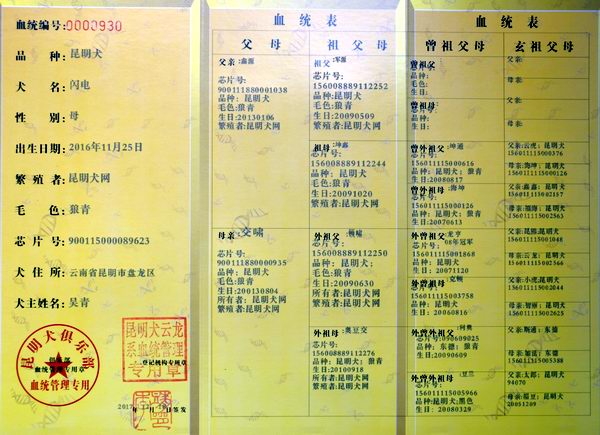 血统编号:0000930
品种:昆明犬
犬名:闪电
性别:母
出生日期:2016年11月25日
繁殖者:昆明犬网
毛色:狼青
芯片号:900115000089623
犬住所:云南省昆明市盘龙区
犬主姓名:吴青
昆明犬俱乐部
血统管理专用
昆明犬云龙
系血统管理
专用章
血统表
父母
祖父母
父亲:鑫源
芯片号:
900111880001038
品种:昆明犬
毛色:狼青
生日:20130106
繁殖者:昆明犬网
母亲:交啸
芯片号:
900111800000935
品种:昆明犬
毛色:狼青
生日:20130804
所有者:昆明犬网
繁殖者:昆明犬网
祖父:军源
芯片号:
156008889112252
品种:昆明犬
毛色:狼青
生日:20090509
繁殖者:昆明犬网
祖母:坤鑫
芯片号:
156008889112244
品种:昆明犬
毛色:狼青
生日:20091020
繁殖者:昆明犬网
外祖父:顿啸
芯片号:
156008889112250
品种:昆明犬;
毛色:狼青
生日:20090630
所有者:昆明犬网
繁殖者:昆明犬网
外祖母:奥豆交
芯片号:
156008889112276
品种:昆明犬
毛色:狼青
生日:20100918
所有者:昆明犬网
繁殖者:昆明犬网
血统表
曾祖父母
玄祖父母
曾祖父:
芯片号:
品种:
毛色:
生日:
曾祖母:
芯片号:
品种:
毛色:
生日:
曾外祖父:坤通
芯片号:
156011115000616
品种:昆明犬:狼青
生日:20080817
曾外祖母:海坤
156011115000126
品种:昆明犬:狼青
生日:20070613
外曾祖父:龙亨
芯片号:08年冠军
156011115001868
品种:昆明犬
生日:20071120
外曾祖母:
156011115003758
品种:昆明犬
生日:20060816
外曾外祖父:
芯片号:090609025
品种:东德:狼青
生日:20090609
曾外曾祖母:
芯片号:
156011115005966
品种:昆明犬:黑色
生日:20080329
父亲:
母亲:
父亲:
母亲:
父亲:云虎:昆明犬
156011115000376
母亲:海坤:昆明犬
156011115000126
父亲:鑫鑫:昆明犬
156011115002157
母亲:昆明犬
156011115002563
父亲:昆明犬
156011115001048
母亲:云龙:昆明犬
156011115002366
父亲:小虎:昆明犬
156011115002044
母亲:昆明犬
156011115002611
父亲:斯通:东德
母亲:东德
156011115005388
父亲:太郎:昆明犬
94070
母亲:昆明犬
20051209